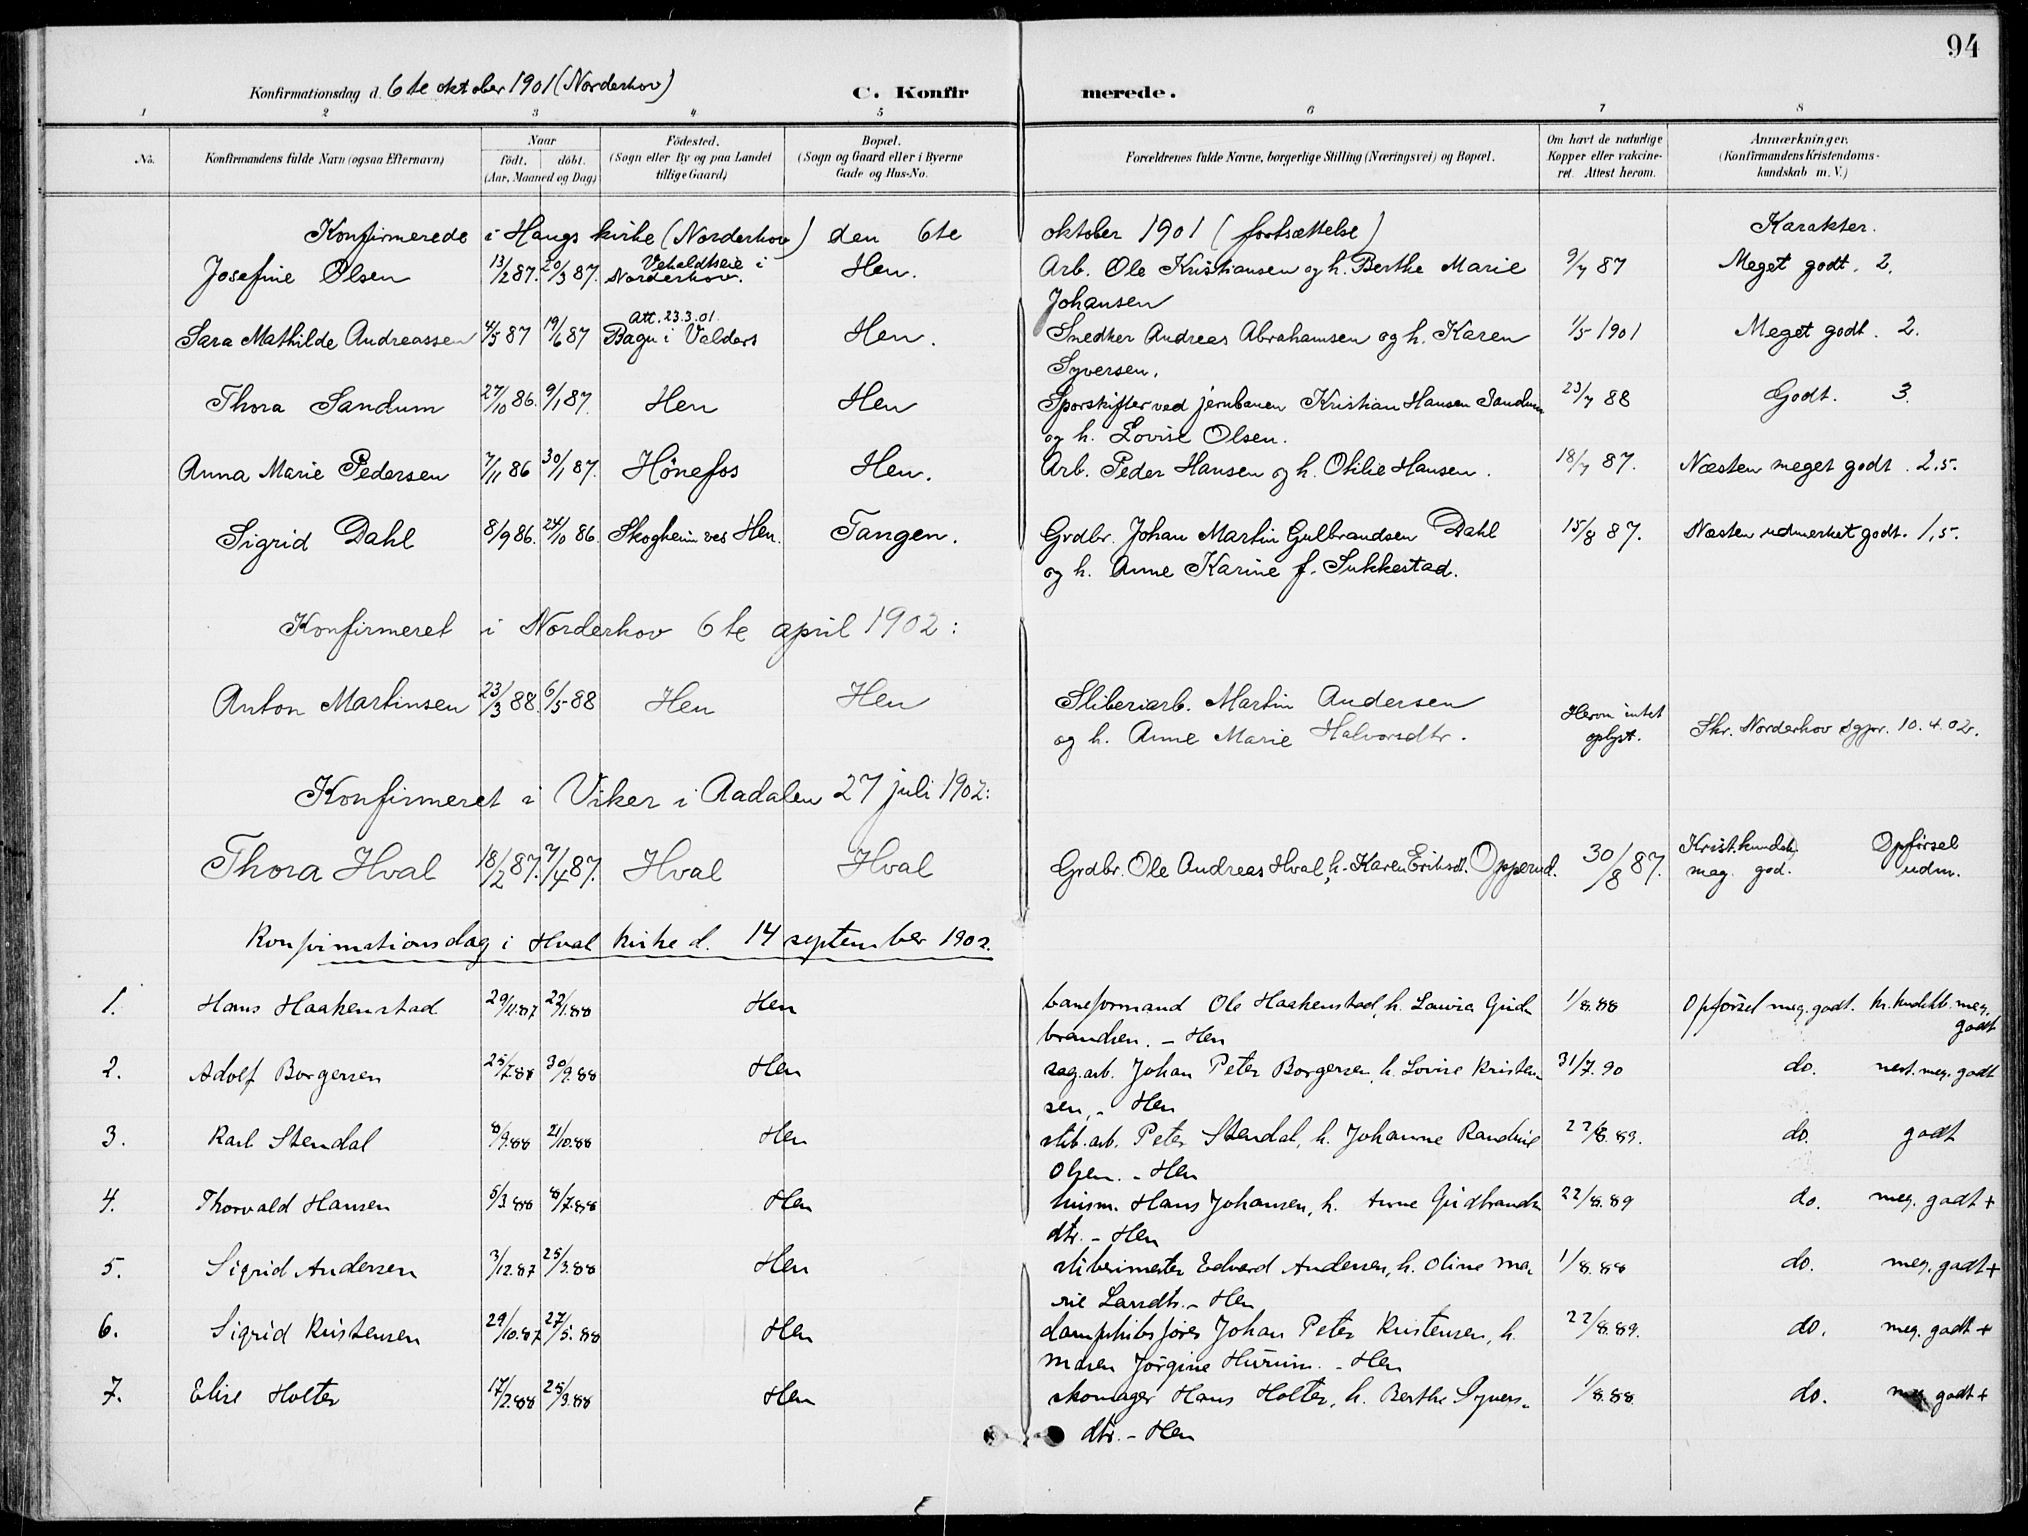 94
Konfirmationsdag d. 6te oktober 1901 (Norderhov)
C. Konfir merede.
1 2 3 4 5 6 7 8
No.
Konfirmandens fulde Navn (ogsaa Efternavn)
Naar
födt. döbt.
(Aar, Maaned og Dag)
Födested.
(Sogn eller By og paa Landet
tillige Gaard)
Bopæl.
(Sogn og Gaard eller i Byerne
Gade og Hus-No.
Forældrenes fulde Navne, borgerlige Stilling (Næringsvei) og Bopæl.
Om havt de naturlige
Kopper eller vakcine-
ret. Attest herom.
Anmærkninger.
(Konfirmandens Kristendoms-
kundskab m. V.)
Konfirmerede i Haugs kirke (Norderhov) den 6te oktober 1901 (fortsættelse) Karakter.
Josefine Olsen 13/2 87. 20/3 87. Vehaldtseie i Norderhov. Hen. Arb. Ole Kristiansen og h. Berthe Marie 9/7 87 Meget godt. 2.
Johansen
Att. 23.3.01.
Sara Mathilde Andreassen 4/5 87 19/6 87 Bagn i Valders Hen. Snedker Andreas Abrahamsen og h. Karen 1/5 1901 Meget godt. 2.
Syversen.
Thora Sandum 27/10 86. 9/1 87. Hen Hen Sporskifter ved jernbanen Kristian Hansen Sandum 23/7 88 Godt. 3.
og h. Lovise Olsen.
Anna Marie Pedersen 7/11 86 30/1 87. Hønefos Hen. Arb. Peder Hansen og h. Othlie Hansen. 18/7 87. Næsten meget godt. 2,5.
Sigrid Dahl 8/9 86. 24/10 86. Skogheim ved Hen. Tangen. Grdbr. Johan Martin Gulbrandsen Dahl 15/8 87. Næsten udmerket godt. 1,5.
og h. Anne Karine f. Sukkestad.
Konfirmeret i Norderhov 6te april 1902:
Anton Martinsen 23/3 88. 6/5 88 Hen Hen Sliberiarb. Martin Andersen
og h. Anne Marie Halvorsdtr. Herom intet oplyst. Skr. Norderhov sgpr. 10.4.02.
Konfirmeret i Viker i Aadalen 27 juli 1902:
Thora Hval 18/2 87. 7/4 87. Hval Hval Grdbr. Ole Andreas Hval, h. Karen Eriksdt. Opperud. 30/8 87. Krist.kundsk. meg. god. Opførsel udm.
Konfirmationsdag i Hval kirke d. 14 september 1902.
1. Hans Haakenstad 29/11.87 22/1.88 Hen baneformand Ole Haakenstad, h. Lovisa Gud- 1/8.88 Opförsel meg. godt. kr.kndskb. meg.
brandsen. - Hen godt
2. Adolf Borgersen 25/7.88 30/9.88 Hen sag.arb. Johan Peter Borgersen, h. Lovise Kristen- 31/7.90 do. nest. meg. godt
sen, - Hen
3. Karl Stendal 8/9.88 21/10.88 Hen slib.arb. Peter Stendal, h. Johanne Randine 22/8.89. do. godt
Olsen. - Hen
4. Thorvald Hansen 5/3.88 8/7.88 Hen husm. Hans Johansen, h. Anne Gudbrands- 22/8.89 do. meg. godt +
dtr. - Hen
5. Sigrid Andersen 3/12.87 25/3.88 Hen sliberimester Edvard Andersen, h. Oline Ma- 1/8.88 do. meg. godt +
rie Larsdtr. - Hen
6. Sigrid Kristensen 29/10.87 27/5.88 Hen dampskibsförer Johan Peter Kristensen, h. 22/8.89. do. meg. godt +
Maren Jörgine Hurum. - Hen
7. Elise Holter 17/2.88 25/3.88 Hen skomager Hans Holter, h. Berthe Syvers- 1/8.88. do. meg. godt +
dtr. - Hen